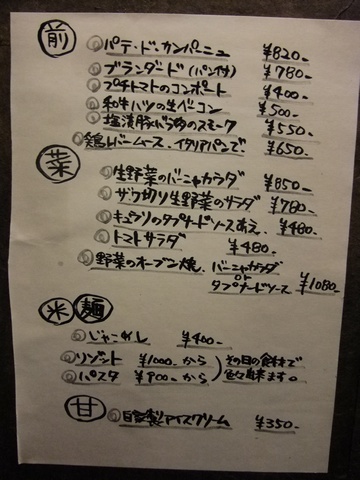 前
◎パテ・ド・カンパーニュ ¥820-
◎ブランダード(パン付) ¥780-
◎プチトマトのコンポート ¥400-
◎和牛ハツの生ベーコン ¥500-
◎塩漬豚バラ肉のスモーク ¥550-
◎鶏レバームース、イタリアパンで ¥650-
菜
◎生野菜のバーニャカウダ ¥850-
◎ザク切り生野菜のサラダ ¥780-
◎キュウリのタプナードソースあえ、 ¥480-
◎トマトサラダ ¥480-
◎野菜のオーブン焼、 バーニャカウダ
or
タプナードソース ¥1080-
米 麺
◎じゃこめし ¥400-
◎リゾット ¥1000-から その日の食材で
◎パスタ ¥900-から 色々出来ます。
甘
◎自家製アイスクリーム ¥350-